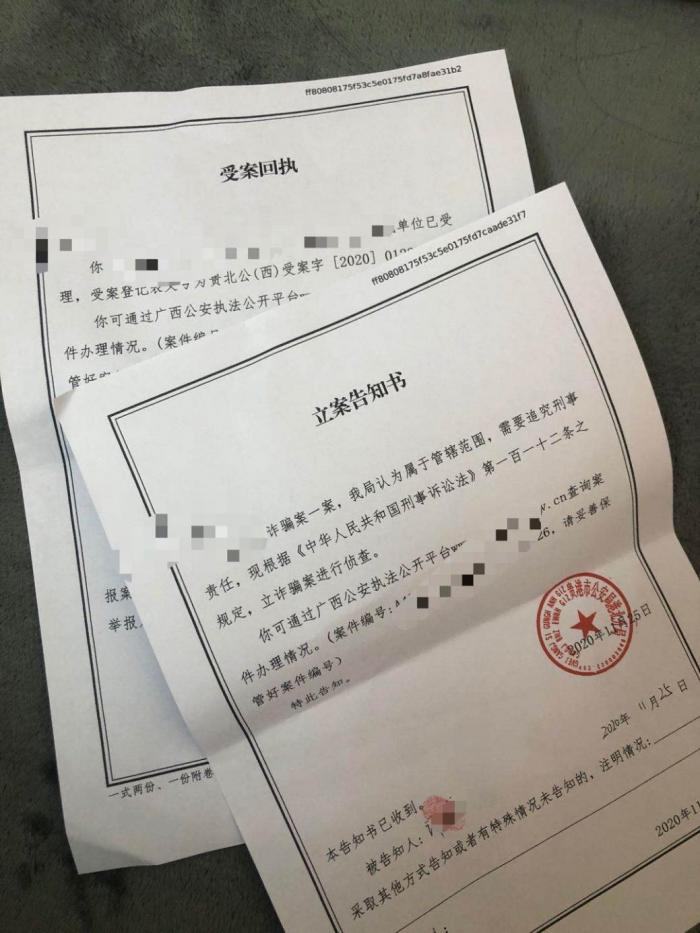 ff80808175f53c5e0175fd7a8fae31b2
受案回执
你 单位已受
理，受案登记表文号为贵北公(西)受案字[2020]01
你可通过广西公安执法公开平台
件办理情况。(案件编号
管好
报案
举报
一式两份，一份附卷
ff80808175f53c5e0175fd7caade31f7
立案告知书
诈骗案一案，我局认为属于管辖范围，需要追究刑事
责任，现根据《中华人民共和国刑事诉讼法》第一百一十二条之
规定，立诈骗案进行侦查。
你可通过广西公安执法公开平台w .cn查询案
件办理情况。(案件编号: 26，请妥善保
管好案件编号)
特此告知。
贵港市公安局港北分局
2020年11月25日
2020年 11月25日
本告知书已收到。
被告知人:
采取其他方式告知或者有特殊情况未告知的，注明情况:
2020年11